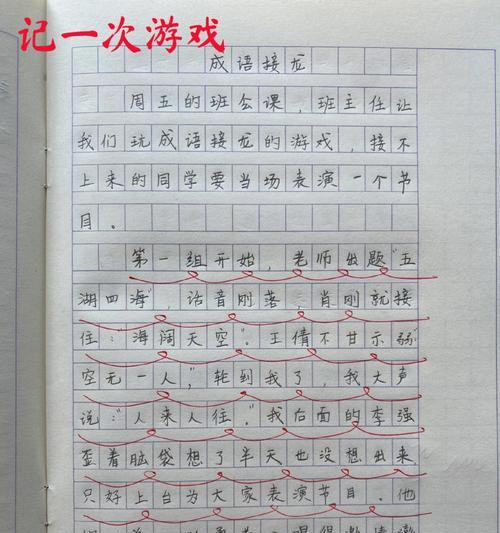 记一次游戏
成语接龙
周五的班会课，班主任让
我们玩成语接龙的游戏，接不
上来的同学要当场表演一个节
目。
第一组开始，老师出题“五
湖四海”，话音刚落，肖刚就接
住：“海阔天空”。王倩不甘示弱
空无一人”，轮到我了，我大声
说：“人来人往。”我后面的李强
歪着脑袋想了半天也没想出来，
只好上台为大家表演节目。他